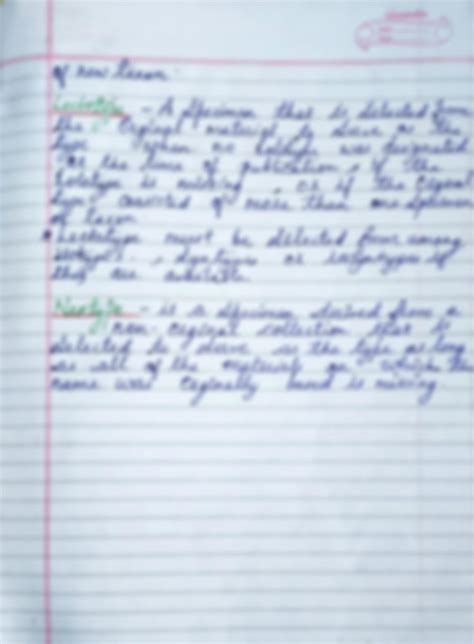 of new taxon.
Lectotype - A specimen that is selected from
the original material to serve as the
type when no holotype was designated
at the time of publication, if the
holotype is missing, or if the original
type consisted of more than one specimen
of taxon
Lectotype must be selected from among
isotypes, syntypes or if
they are available
Neotype - is a specimen derived from a
non-original collection that is
selected to serve as the type as long
as all of the material on which the
name was originally based is missing